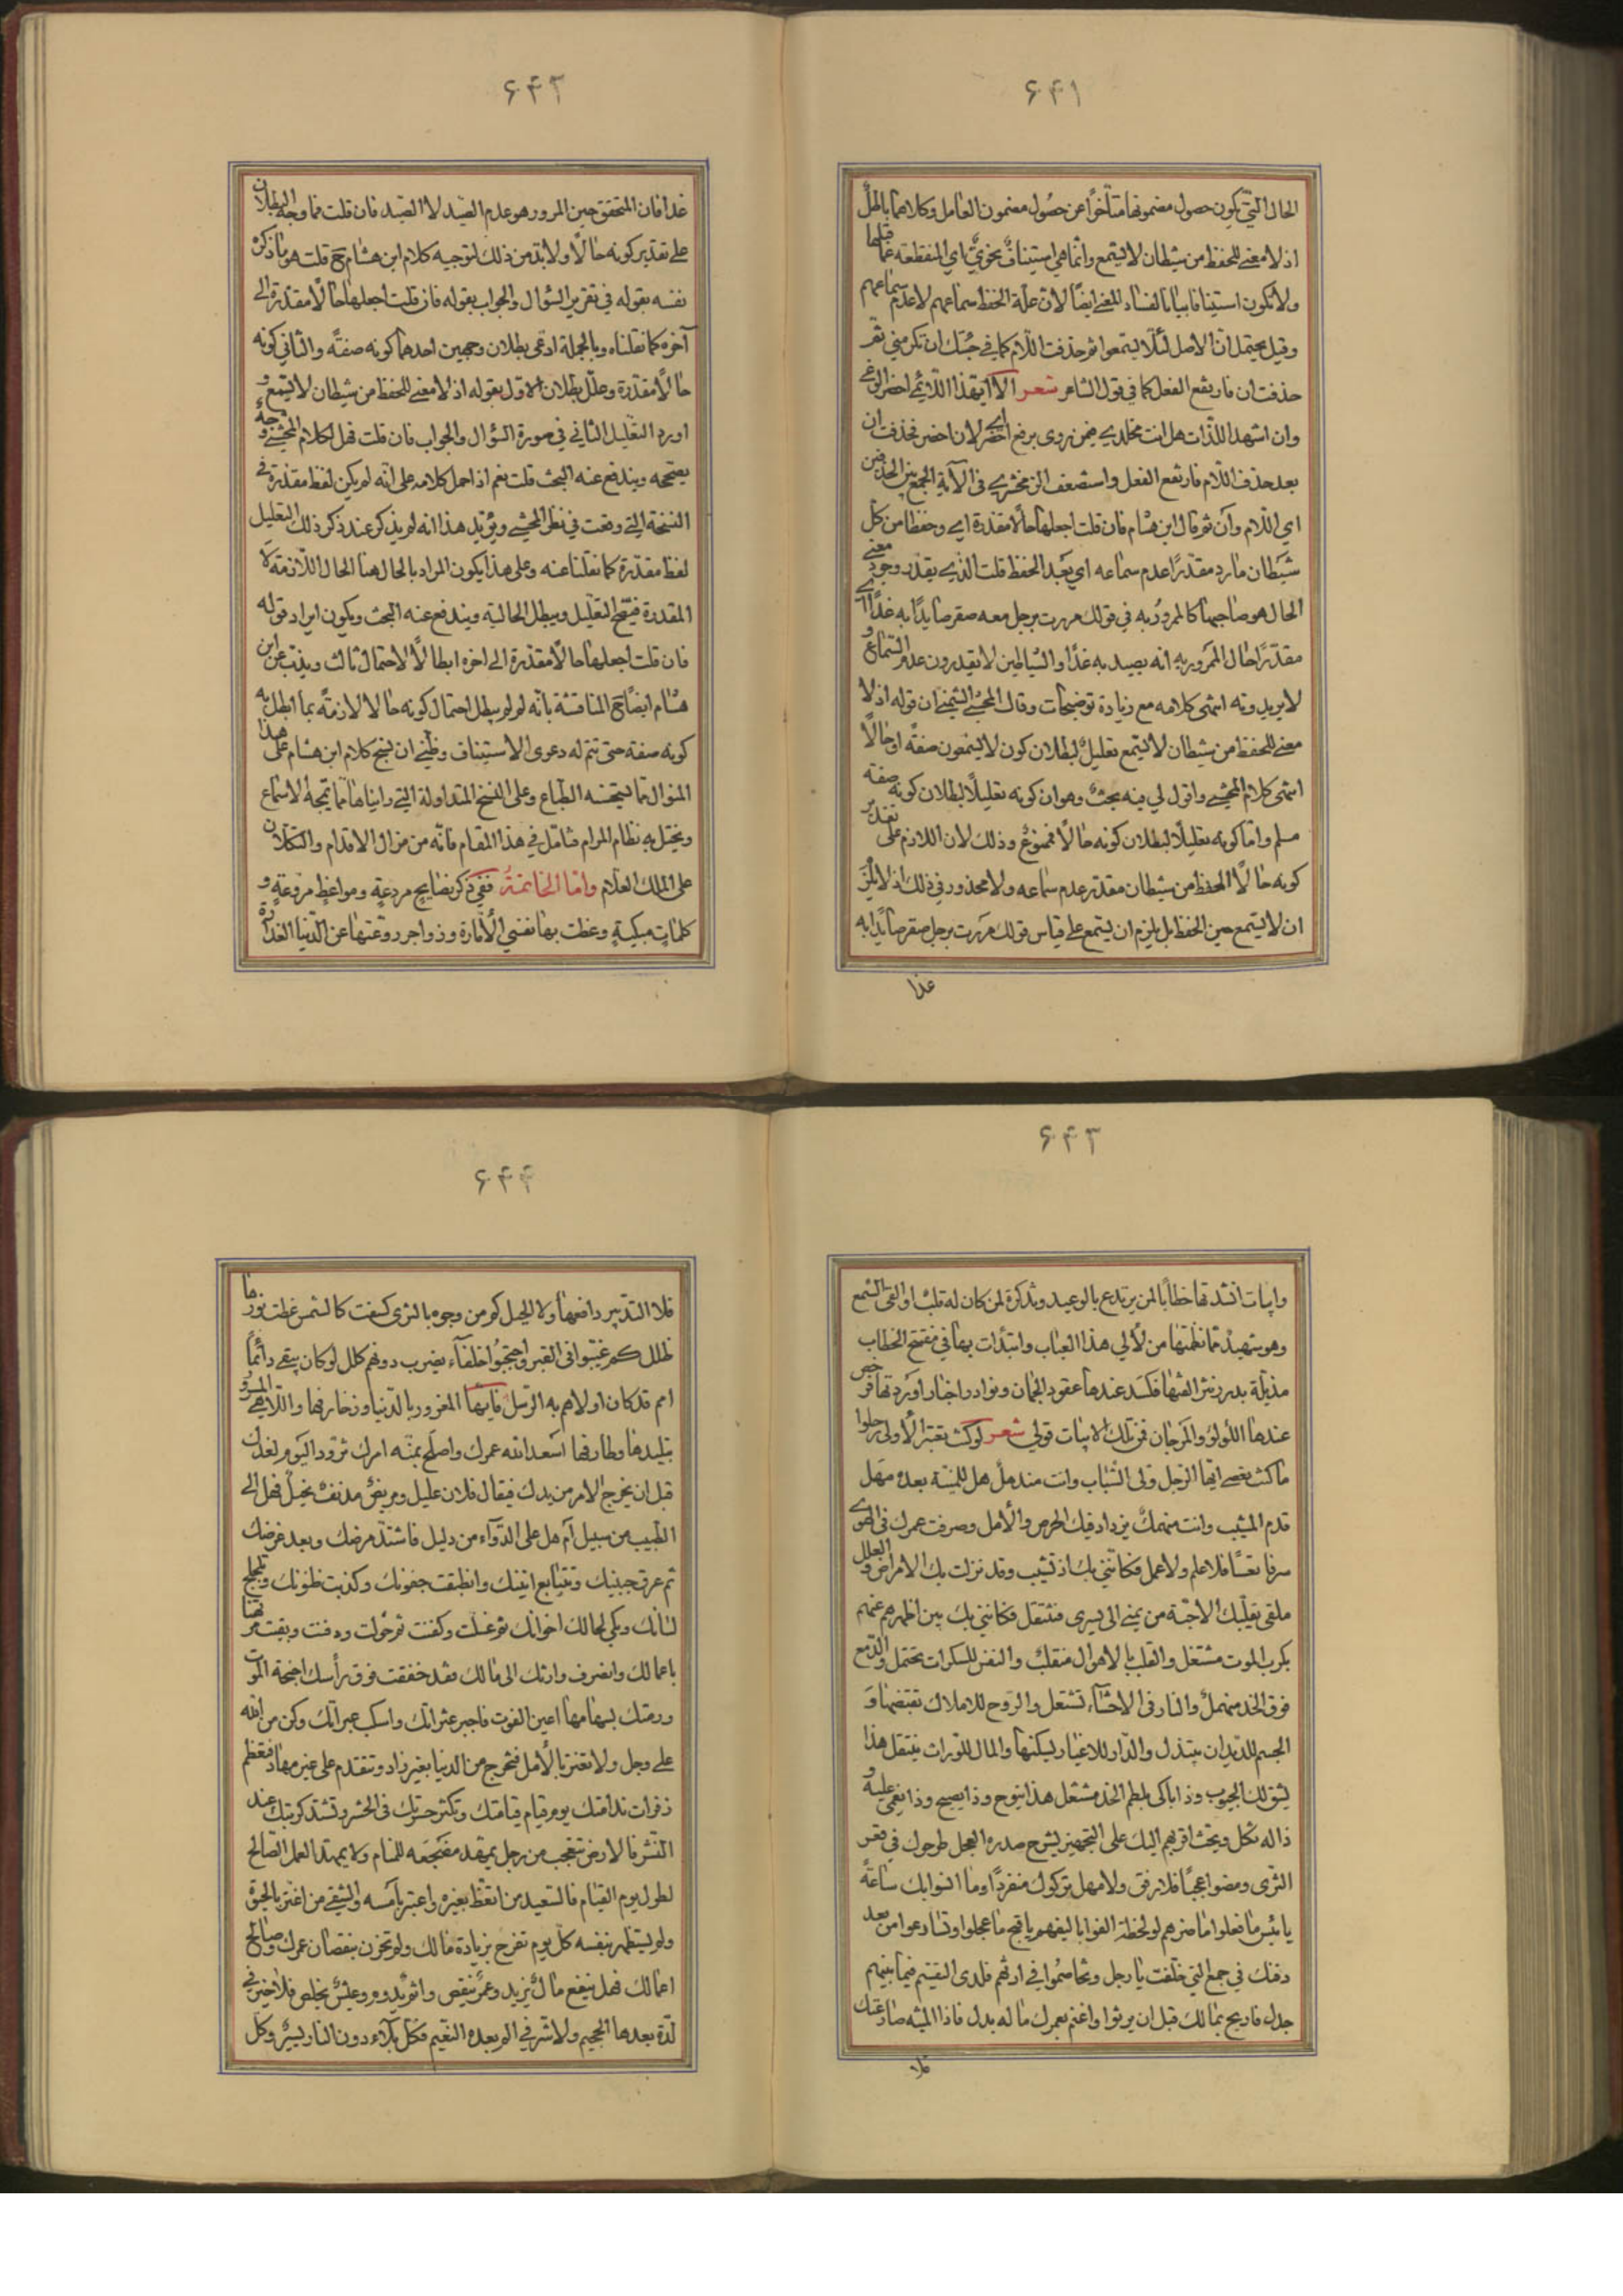 ۶۴۱
الحال التي يكون حصول مضمونها متأخرًا عن حصول مضمون العامل وكلاهما باطل
اذ لا معنى للحفظ من شيطان لا يسمع وانما هي استيناف نحوي اي المنقطعة عما قبلها
ولا تكون استينافا بيانيا لفساد المعنى ايضًا لان علة الحفظ سماعهم لا عدم سماعهم
وقيل يحتمل ان الاصل لئلا يسمعوا ثم حذفت اللام كما في جئتك ان تكرمني ثم
حذفت ان فارتفع الفعل كما في قول الشاعر شعر الا ايهذا اللائمي احضر الوغى
وان اشهد اللذات هل انت مخلدي فيمن روى برفع احضر اي لان احضر فحذفت ان
بعد حذف اللام فارتفع الفعل واستضعف الزمخشري في الآية الجمع بين الحذفين
اي اللام وان ثم قال ابن هشام فان قلت اجعلها حالًا مقدرة اي وحفظا من كل
شيطان مارد مقدرًا عدم سماعه اي بعد الحفظ قلت الذي يقدر وجود معنى
الحال هو صاحبها كالممرور به في قولك مررت برجل معه صقر صايدًا به غدًا اي
مقدرًا حال المرور به انه يصيد به غدًا والشياطين لا يقدرون عدم السماع و
لا يريدونه انتهى كلامه مع زيادة توضيحات وقال المحشي الشمني ان قوله اذ لا
معنى للحفظ من شيطان لا يسمع تعليل لبطلان كون لا يسمعون صفة او حالًا
انتهى كلام المحشي واقول لي فيه بحث وهو ان كونه تعليلًا لبطلان كونه صفة
مسلم واما كونه تعليلًا لبطلان كونه حالًا فممنوع وذلك لان اللازم على تقدير
كونه حالًا الحفظ من شيطان مقدر عدم سماعه ولا محذور في ذلك اذ لا يلزم
ان لا يسمع حين الحفظ بل يلزم ان يسمع على قياس قولك مررت برجل صقر صايدًا به
غدا
۶۴۲
غدا فان المتحقق حين المرور هو عدم الصيد لا الصيد فان قلت فما وجه البطلان
على تقدير كونه حالًا ولابد من ذلك لتوجيه كلام ابن هشام ح قلت هو ما ذكره
نفسه بقوله في تقرير السؤال والجواب بقوله فان قلت اجعلها حالًا مقدرة الى
آخره كما نقلناه وبالجملة ادعى بطلان وجهين احدهما كونه صفة والثاني كونه
حالًا مقدرة وعلل بطلان الاول بقوله اذ لا معنى للحفظ من شيطان لا يسمع و
اورد التعليل الثاني في صورة السؤال والجواب فان قلت فهل لكلام المحشي وجه
يصححه ويندفع عنه البحث قلت نعم اذا حمل كلامه على انه لم يكن لفظ مقدرة في
النسخة التي وقعت في نظر المحشي ويؤيد هذا انه لم يذكر عند ذكر ذلك التعليل
لفظ مقدرة كما نقلنا عنه وعلى هذا يكون المراد بالحال هنا الحال اللازمة لا
المقدرة فيصح التعليل ويبطل الحالية ويندفع عنه البحث ويكون ايراد قوله
فان قلت اجعلها حالًا مقدرة الى اخره ابطالًا لاحتمال ثالث ويذب عن ابن
هشام ايضًا ح المناقشة بانه لم لم يبطل احتمال كونه حالا لازمة بما ابطل به
كونه صفة حتى تتم له دعوى الاستيناف وظني ان نسج كلام ابن هشام على هذا
المنوال مما يستحسنه الطباع وعلى النسخ المتداولة التي رايناها مما تمجه الاسماع
ويختل به نظام المرام فتامل في هذا المقام فانه من مزال الاقدام والتكلان
على الملك العلام واما الخاتمة ففي ذكر نصايح مردعة ومواعظ مروعة و
كلمات مبكية وعظت بها نفسي الامارة وزواجر روعتها عن الدنيا الغدارة
۶۴۳
وابيات انشدتها خطابًا لمن يرتدع بالوعيد وتذكرة لمن كان له قلب او القى السمع
وهو شهيد مما نظمتها من لآلي هذا العباب وابتدات بها في مفتتح الخطاب
مذيلة بدرر نثر الفتها فكسد عندها عقود الجمان ونوادر اخبار اوردتها فرخص
عندها اللؤلؤ والمرجان فمن تلك الابيات قولي شعر لو كنت تعتبر الاولى رحلوا
ما كنت تعصي ايها الرجل ولى الشباب وانت منذهل هل للمنية بعده مهل
قدم المشيب وانت منهمك يزداد فيك الحرص والامل وصرفت عمرك في الهوى
سرفا تعسًا فلا علم ولا عمل فكانني بك اذ تشيب وقد نزلت بك الامراض والعلل
ملقى يقلبك الاحبة من يمنى الى يسرى فتنتقل فكانني بك بين اظهرهم عنهم
بكرب الموت مشتغل والقلب بالاهوال منقلب والنفس للسكرات تحتمل والدمع
فوق الخد منهمل والنار في الاحشاء تشتعل والروح للاملاك تقبضها و
الجسم للديدان يبتذل والدار للاغيار يسكنها والمال للوراث ينتقل هذا
يشق لك الجيوب وذا باكي بلطم الخد مشتغل هذا ينوح وذا يصيح وذا يغمى عليه و
ذا له ثكل ويحث اقربهم اليك على التجهيز يشرح صدره العجل طرحوك في قعر
الثرى ومضوا عجبًا فلا رفق ولا مهل تركوك منفردًا وما لبثوا بك ساعة
يا بئس ما فعلوا ما ضرهم لو لحظة الفوا يا ليفهم يا قبح ما عجلوا وتسارعوا من بعد
دفنك في جمع التي خلفت يا رجل وتخاصموا في ارثهم فلدى التقسيم فيما بينهم
جدل فاربح بمالك قبل ان يرثوا واغنم بعمرك ماله بدل فاذا المنية صادفتك
فلا
۶۴۴
فلا التدبير دافعها ولا الحيل كم من وجوه بالثرى كسفت كالشمس غطت نورها
ظلل كم غيبوا في القبر واحتجبوا خلفاء يضرب دونهم كلل لو كان يبقى دائمًا
امم قد كان اولاهم به الرسل فايها المغرور بالدنيا وزخارفها واللاهي المسرور
بتليدها وطارفها اسعد الله عمرك واصلح بمنه امرك تزود اليوم لغدك
قبل ان يخرج الامر من يدك فيقال فلان عليل ومريض مدنف نحيل فهل الى
الطبيب من سبيل ام هل على الدواء من دليل فاشتد مرضك وبعد غرضك
ثم عرق جبينك وتتابع انينك وانطبقت جفونك وكذبت ظنونك وتلجلج
لسانك وبكى لحالك اخوانك ثم غسلت وكفنت ثم حولت ودفنت وبقيت مرتهنا
باعمالك وانصرف وارثك الى مالك فقد خفقت فوق رأسك اجنحة الموت
ورمتك بسهامها اعين الفوت فاجبر عثراتك واسكب عبراتك وكن من الله
على وجل ولا تغتر بالامل فتخرج من الدنيا بغير زاد وتتقدم على غير مهاد فتعظم
زفرات ندامتك يوم قيام قيامتك وتكثر حسرتك في الحشر وتشتد كربتك عند
النشر فالارض تتعجب من رجل يمهد مضجعه للمنام ولا يمهد العمل الصالح
لطول يوم القيام فالسعيد من اتعظ بغيره واعتبر بامسه والشقي من اغتر بالحيوة
ولم يستظهر بنفسه كل يوم تفرح بزيادة مالك ولم تحزن بنقصان عمرك وصالح
اعمالك فهل ينفع مال يزيد وعمر ينقص واثر يدوم وعيش يخلص فلا خير في
لذة بعدها الجحيم ولا شر في الم بعده النعيم فكل بلاء دون النار يسير وكل